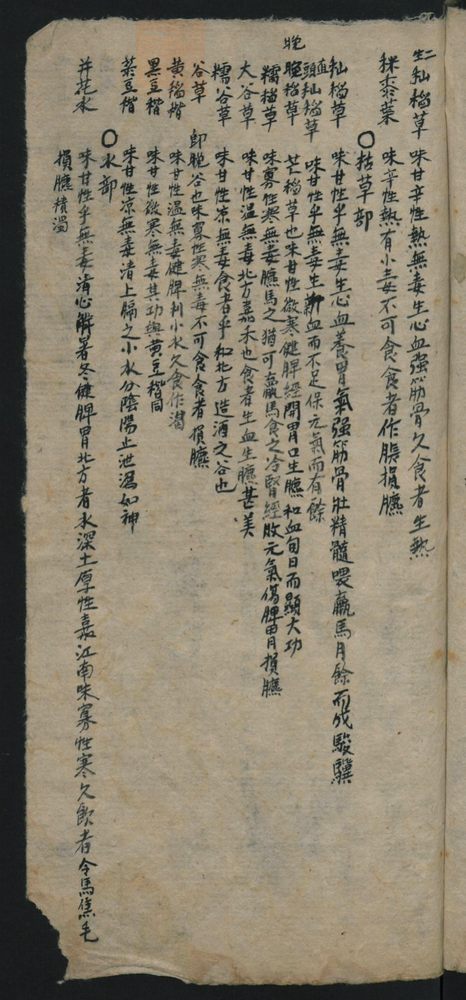 生秈稻草 味甘辛性熱無毒生心血強筋骨久食者生熱
秣黍葉 味辛性熱有小毒不可食食者作脹損臕
〇枯草部
秈稻草 味甘性乎無毒生心血養胃氣强筋骨壯精髓喂羸馬月餘而成駿驥
頭秈稻草 味甘性乎無毒生新血而不足保元氣而有餘
晚稻草 芒稻草也味甘性微寒健脾經開胃口生臕和血旬日而顯大功
糯稻草 味寡性寒無毒臕馬之猶可羸馬食之冷腎經敗元氣傷脾胃損臕
大谷草 味甘性溫無毒北方嘉禾也食者生血生臕甚美
糯谷草 味甘性凉無毒食者乎和北方造酒之谷也
谷草 即晚谷也味寡性寒無毒不可食食者損臕
黃稻楷 味甘性溫無毒健脾利小水久食作渴
黑豆楷 味甘性微寒無毒其功與黃豆楷同
菉豆楷 味甘性凉無毒清上膈之小水分陰陽止泄瀉如神
〇水部
井花水 味甘性乎無毒清心觧暑冬健脾胃北方者水深土厚性嘉江南味寡性寒久飲者令馬焦毛
損臕積濁